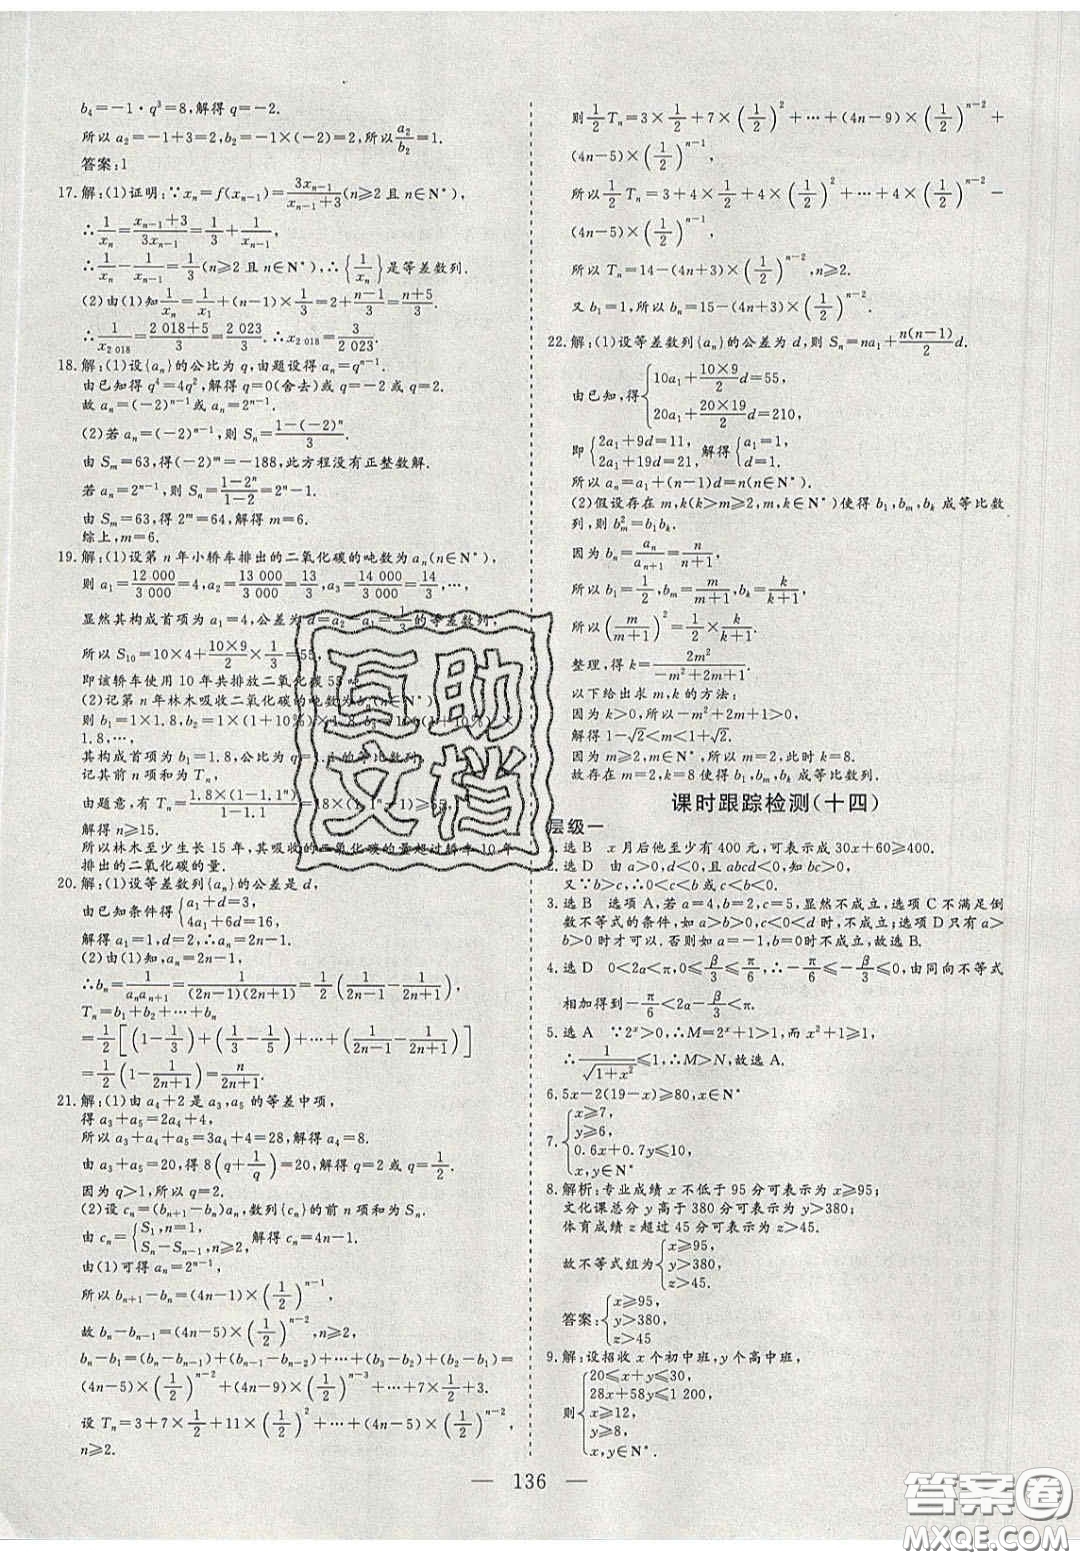 b₄=-1·q³=8,解得q=-2.
所以a₂=-1+3=2,b₂=-1×(-2)=2,所以a₂/b₂=1.
答案:1
17.解:(1)证明:∵xₙ=f(xₙ₋₁)=3xₙ₋₁/(xₙ₋₁+3)(n≥2且n∈N*),
∴1/xₙ=(xₙ₋₁+3)/3xₙ₋₁=1/3+1/xₙ₋₁,
∴1/xₙ-1/xₙ₋₁=1/3(n≥2且n∈N*),∴{1/xₙ}是等差数列.
(2)由(1)知1/xₙ=1/x₁+(n-1)×1/3=2+(n-1)/3=(n+5)/3.
∴1/x₂₀₁₈=(2 018+5)/3=2 023/3,∴x₂₀₁₈=3/2 023.
18.解:(1)设{aₙ}的公比为q,由题设得aₙ=qⁿ⁻¹.
由已知得q⁴=4q²,解得q=0(舍去)或q=-2或q=2.
故aₙ=(-2)ⁿ⁻¹或aₙ=2ⁿ⁻¹.
(2)若aₙ=(-2)ⁿ⁻¹,则Sₙ=(1-(-2)ⁿ)/3.
由Sₘ=63,得(-2)ᵐ=-188,此方程没有正整数解.
若aₙ=2ⁿ⁻¹,则Sₙ=(1-2ⁿ)/(1-2)=2ⁿ-1.
由Sₘ=63,得2ᵐ=64,解得m=6.
综上,m=6.
19.解:(1)设第n年小轿车排出的二氧化碳的吨数为aₙ(n∈N*),
则a₁=12 000/3 000=4,a₂=13 000/3 000=13/3,a₃=14 000/3 000=14/3,…,
显然其构成首项为a₁=4,公差为d=a₂-a₁=1/3的等差数列,
所以S₁₀=10×4+(10×9)/2×1/3=55,
即该轿车使用10年共排放二氧化碳55
(2)记第n年林木吸收二氧化碳的吨数为bₙ(n∈N*),
则b₁=1×1.8,b₂=1×(1+10%)×
1.8,…,
其构成首项为b₁=1.8,公比为q=1.1的等比数列,
记其前n项和为Tₙ,
由题意,有Tₙ=1.8×(1-1.1ⁿ)/=18×(1.1ⁿ-1)≥55,
解得n≥15.
所以林木至少生长15年,其吸收的二氧化碳的量超过轿车10年
排出的二氧化碳的量.
20.解:(1)设等差数列{aₙ}的公差是d,
由已知条件得{a₁+d=3,
4a₁+6d=16,
解得a₁=1,d=2,∴aₙ=2n-1.
(2)由(1)知,aₙ=2n-1,
∴bₙ=1/(aₙaₙ₊₁)=1/((2n-1)(2n+1))=1/2(1/(2n-1)-1/(2n+1)),
Tₙ=b₁+b₂+…+bₙ
=1/2[(1-1/3)+(1/3-1/5)+…+(1/(2n-1)-1/(2n+1))]
=1/2(1-1/(2n+1))=n/(2n+1).
21.解:(1)由a₄+2是a₃,a₅的等差中项,
得a₃+a₅=2a₄+4,
所以a₃+a₄+a₅=3a₄+4=28,解得a₄=8.
由a₃+a₅=20,得8(q+1/q)=20,解得q=2或q=1/2.
因为q>1,所以q=2.
(2)设cₙ=(bₙ₊₁-bₙ)aₙ,数列{cₙ}的前n项和为Sₙ.
由cₙ={S₁,n=1,
Sₙ-Sₙ₋₁,n≥2,解得cₙ=4n-1.
由(1)可得aₙ=2ⁿ⁻¹,
所以bₙ₊₁-bₙ=(4n-1)×(1/2)ⁿ⁻¹,
故bₙ-bₙ₋₁=(4n-5)×(1/2)ⁿ⁻²,n≥2,
bₙ-b₁=(bₙ-bₙ₋₁)+(bₙ₋₁-bₙ₋₂)+…+(b₃-b₂)+(b₂-b₁)=
(4n-5)×(1/2)ⁿ⁻²+(4n-9)×(1/2)ⁿ⁻³+…+7×1/2+3.
设Tₙ=3+7×1/2+11×(1/2)²+…+(4n-5)×(1/2)ⁿ⁻²,
n≥2.
则1/2Tₙ=3×1/2+7×(1/2)²+…+(4n-9)×(1/2)ⁿ⁻²+
(4n-5)×(1/2)ⁿ⁻¹,
所以1/2Tₙ=3+4×1/2+4×(1/2)²+…+4×(1/2)ⁿ⁻²-
(4n-5)×(1/2)ⁿ⁻¹,
所以Tₙ=14-(4n+3)×(1/2)ⁿ⁻²,n≥2.
又b₁=1,所以bₙ=15-(4n+3)×(1/2)ⁿ⁻².
22.解:(1)设等差数列{aₙ}的公差为d,则Sₙ=na₁+n(n-1)/2 d.
由已知,得{10a₁+(10×9)/2 d=55,
20a₁+(20×19)/2 d=210,
即{2a₁+9d=11,
2a₁+19d=21,解得{a₁=1,
d=1.
所以aₙ=a₁+(n-1)d=n(n∈N*).
(2)假设存在m,k(k>m≥2,m,k∈N*)使得b₁,bₘ,bₖ成等比数
列,则bₘ²=b₁bₖ.
因为bₙ=aₙ/aₙ₊₁=n/(n+1),
所以b₁=1/2,bₘ=m/(m+1),bₖ=k/(k+1),
所以(m/(m+1))²=1/2×k/(k+1).
整理,得k=2m²/(-m²+2m+1).
以下给出求m,k的方法:
因为k>0,所以-m²+2m+1>0,
解得1-√2<m<1+√2.
因为m≥2,m∈N*,所以m=2,此时k=8.
故存在m=2,k=8使得b₁,bₘ,bₖ成等比数列.
课时跟踪检测(十四)
层级一
1.选B x月后他至少有400元,可表示成30x+60≥400.
2.选D 由a>d>0,且abcd<0,知bc<0,
又∵b>c,∴0<c<b或c<b<0.
3.选B 选项A,若a=4,b=2,显然不成立,选项C不满足倒
数不等式的条件,如a>b>0,c<0<d时,不成立;选项D只有a>
b>0时才可以.否则如a=-1,b=0时不成立,故选B.
4.选D 0<2α<π,0≤β/3≤π/6,∴-π/6≤-β/3≤0,由同向不等式
相加得到-π/6<2α-β/3<π.
5.选A ∵2ˣ>0,∴M=2ˣ+1>1,而x²+1≥1,
∴1/√(1+x²)≤1,∴M>N,故选A.
6.5x-2(19-x)≥80,x∈N*
7.{x≥7,
y≥6,
0.6x+0.7y≤10,
x,y∈N*
8.解析:专业成绩x不低于95分可表示为x≥95;
文化课总分y高于380分可表示为y>380;
体育成绩z超过45分可表示为z>45.
故不等式组为{x≥95,
y>380,
z>45.
答案:{x≥95,
y>380,
z>45
9.解:设招收x个初中班,y个高中班,
则{20≤x+y≤30,
28x+58y≤1 200,
x≥12,
y≥8,
x,y∈N*.
— 136 —
互助
文档
答案圈
MXQE.COM